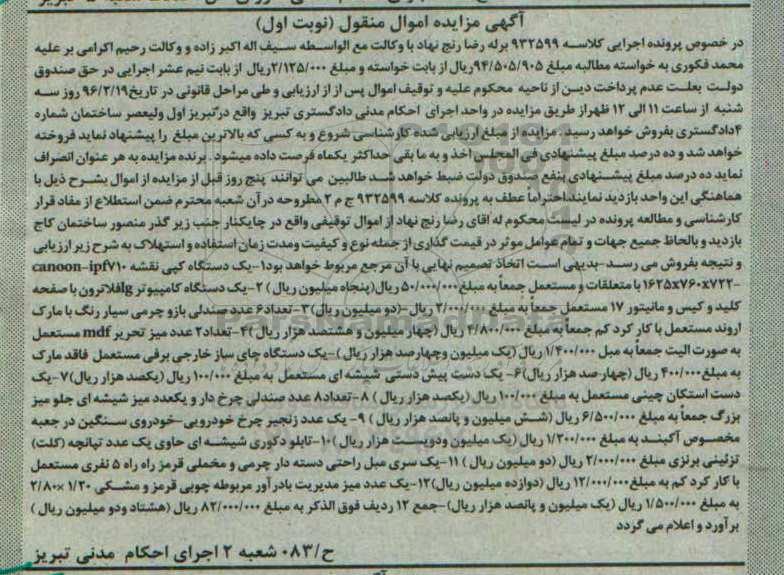 آگهی مزایده اموال منقول (نوبت اول)
در خصوص پرونده اجرایی کلاسه ۹۳۲۵۹۹ برله رضا رنج نهاد با وکالت مع الواسطه سیف اله اکبر زاده و وکالت رحیم اکرامی بر علیه
محمد فکوری به خواسته مطالبه مبلغ ۹۴/۵۰۵/۹۰۵ریال از بابت خواسته و مبلغ ۲/۱۲۵/۰۰۰ریال از بابت نیم عشر اجرایی در حق صندوق
دولت بعلت عدم پرداخت دین از ناحیه محکوم علیه و توقیف اموال پس از از ارزیابی و طی مراحل قانونی در تاریخ۹۶/۲/۱۹ روز سه
شنبه از ساعت ۱۱ الی ۱۲ ظهراز طریق مزایده در واحد اجرای احکام مدنی دادگستری تبریز واقع درتبریز اول ولیعصر ساختمان شماره
۴دادگستری بفروش خواهد رسید. مزایده از مبلغ ارزیابی شده کارشناسی شروع و به کسی که بالاترین مبلغ را پیشنهاد نماید فروخته
خواهد شد و ده درصد مبلغ پیشنهادی فی المجلس اخذ و به ما بقی حداکثر یکماه فرصت داده میشود. برنده مزایده به هر عنوان انصراف
نماید ده درصد مبلغ پیشنهادی بنفع صندوق دولت ضبط خواهد شد طالبین می توانند پنج روز قبل از مزایده از اموال بشرح ذیل با
هماهنگی این واحد بازدید نماینداحتراما عطف به پرونده کلاسه ۹۳۲۵۹۹ ج م ۲ مطروحه در آن شعبه محترم ضمن استطلاع از مفاد قرار
کارشناسی و مطالعه پرونده در لیست محکوم له اقای رضا رنج نهاد از اموال توقیفی واقع در چایکنار جنب زیر گذر منصور ساختمان کاج
بازدید و بالحاظ جمیع جهات و تمام عوامل موثر در قیمت گذاری از جمله نوع و کیفیت ومدت زمان استفاده و استهلاک به شرح زیر ارزیابی
و نتیجه بفروش می رسد-بدیهی است اتخاذ تصمیم نهایی با آن مرجع مربوط خواهد بود۱-یک دستگاه کپی نقشه canoon-ipf۷۱۰
-۱۶۲۵x۷۶۰x۷۲۲ با متعلقات و مستعمل جمعاً به مبلغ۵۰/۰۰۰/۰۰۰ریال(پنجاه میلیون ریال) ۲-یک دستگاه کامپیوتر lgفلاترون با صفحه
کلید و کیس و مانیتور ۱۷ مستعمل جمعاً به مبلغ ۲/۰۰۰/۰۰۰ ریال-(دو میلیون ریال)۳-تعداد۶ عدد صندلی بازو چرمی سیار رنگ با مارک
اروند مستعمل با کار کرد کم جمعاً به مبلغ ۴/۸۰۰/۰۰۰ ریال (چهار میلیون و هشتصد هزار ریال)۴-تعداد۲ عدد میز تحریر mdf مستعمل
به صورت الیت جمعاً به مبل ۱/۴۰۰/۰۰۰ ریال (یک میلیون وچهارصد هزار ریال)-یک دستگاه چای ساز خارجی برقی مستعمل فاقد مارک
به مبلغ۴۰۰/۰۰۰ ریال (چهارصد هزار ریال)۶- یک دست پیش دستی شیشه ای مستعمل به مبلغ ۱۰۰/۰۰۰ ریال (یکصد هزار ریال)۷-یک
دست استکان چینی مستعمل به مبلغ ۱۰۰/۰۰۰ ریال (یکصد هزار ریال) ۸-تعداد۸ عدد صندلی چرخ دار و یکعدد میز شیشه ای جلو میز
بزرگ جمعاً به مبلغ ۶/۵۰۰/۰۰۰ ریال (شش میلیون و پانصد هزار ریال) ۹- یک عدد زنجیر چرخ خودرویی-خودروی سنگین در جعبه
مخصوص آکبند به مبلغ ۱/۲۰۰/۰۰۰ ریال (یک میلیون ودویست هزار ریال)۱۰-تابلو دکوری شیشه ای حاوی یک عدد تپانچه (کلت)
تزئینی برنزی مبلغ ۲/۰۰۰/۰۰۰ ریال (دو میلیون ریال) ۱۱-یک سری مبل راحتی دسته دار چرمی و مخملی قرمز راه راه ۵ نفری مستعمل
با کار کرد کم به مبلغ۱۲/۰۰۰/۰۰۰ ریال (دوازده میلیون ریال)۱۲-یک عدد میز مدیریت بادر آور مربوطه چوبی قرمز و مشکی ۱/۲۰ ×۲/۸۰
به مبلغ ۱/۵۰۰/۰۰۰ ریال (یک میلیون و پانصد هزار ریال)-جمع ۱۲ ردیف فوق الذکر به مبلغ ۸۲/۰۰۰/۰۰۰ ریال (هشتاد ودو میلیون ریال)
برآورد و اعلام می گردد
ح/۰۸۳ شعبه ۲ اجرای احکام مدنی تبریز